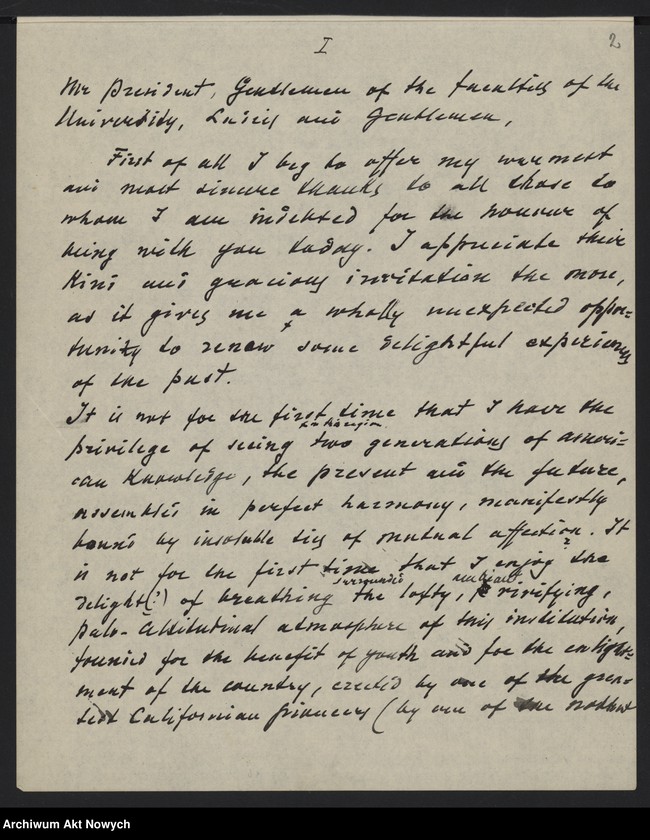 I
2
Mr President, Gentlemen of the faculties of the
University, Ladies and Gentlemen,
First of all I beg to offer my warmest
and most sincere thanks to all those to
whom I am indebted for the honour of
being with you today. I appreciate their
kind and gracious invitation the more,
as it gives me a wholly unexpected oppor=
tunity to renew some delightful experiences
of the past.
It is not for the first time that I have the
privilege of seeing two generations of ameri=
can Knowledge, the present and the future,
assembled in perfect harmony, manifestly
bound by insoluble ties of mutual affection. It
is not for the first time that I enjoy the
surrounded
delight(?) of breathing the lofty, vivifying,
Palo-Altitudinal atmosphere of this institution,
founded for the benefit of youth and for the enlight=
ment of the country, erected by one of the grea=
test Californian pioneers (by one of the noblest
Archiwum Akt Nowych